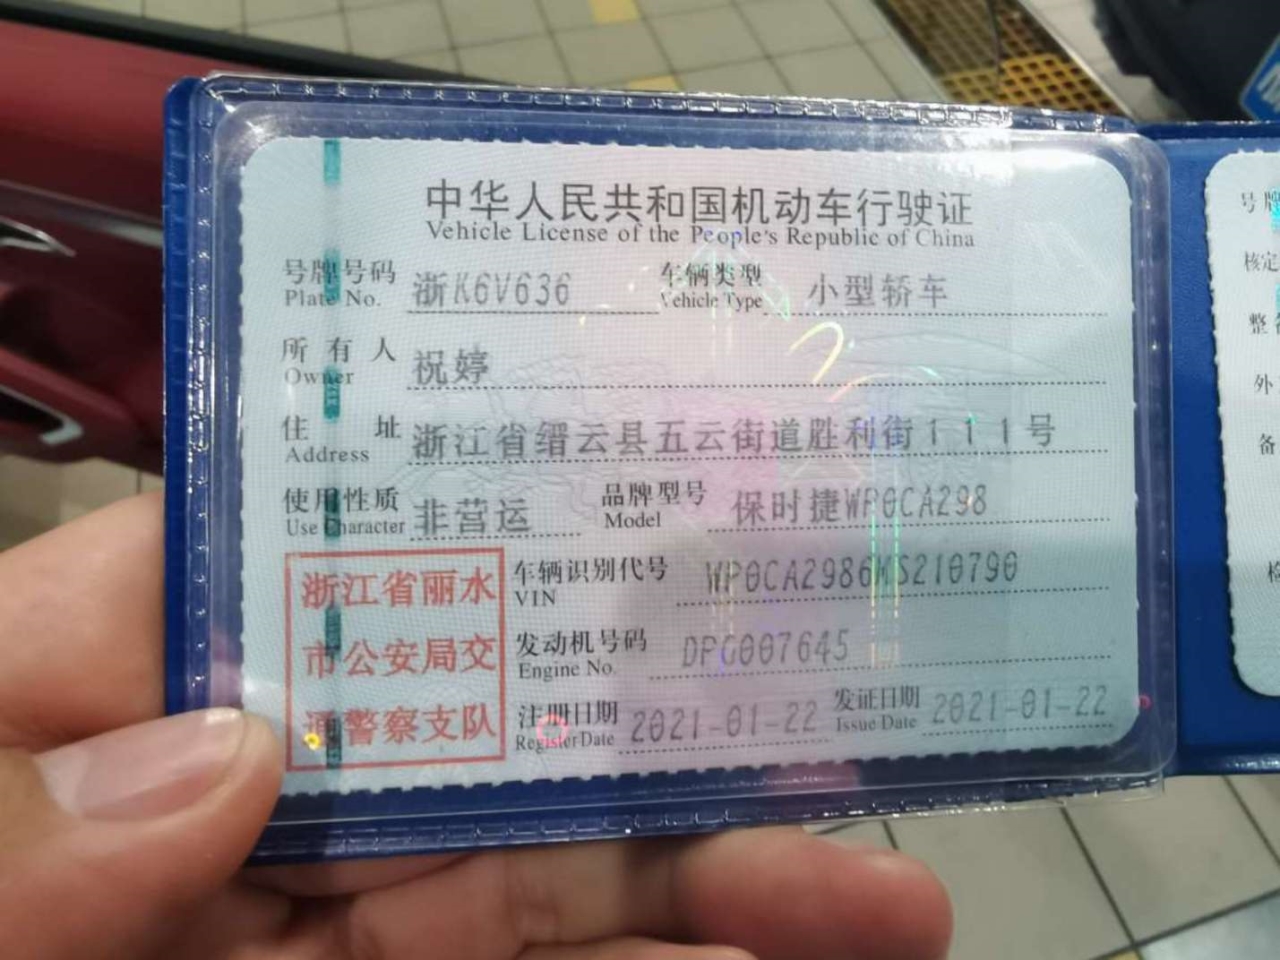 中华人民共和国机动车行驶证
Vehicle License of the People's Republic of China
号牌号码 浙K6V636 车辆类型 小型轿车
Plate No. Vehicle Type
所有人 祝婷
Owner
住址 浙江省缙云县五云街道胜利街111号
Address
使用性质 非营运 品牌型号 保时捷WP0CA298
Use Character Model
浙江省丽水
市公安局交
通警察支队
车辆识别代号 WP0CA2986MS210790
VIN
发动机号码 DPC007645
Engine No.
注册日期 2021-01-22 发证日期 2021-01-22
Register Date Issue Date
号牌
核定
整备
外
备